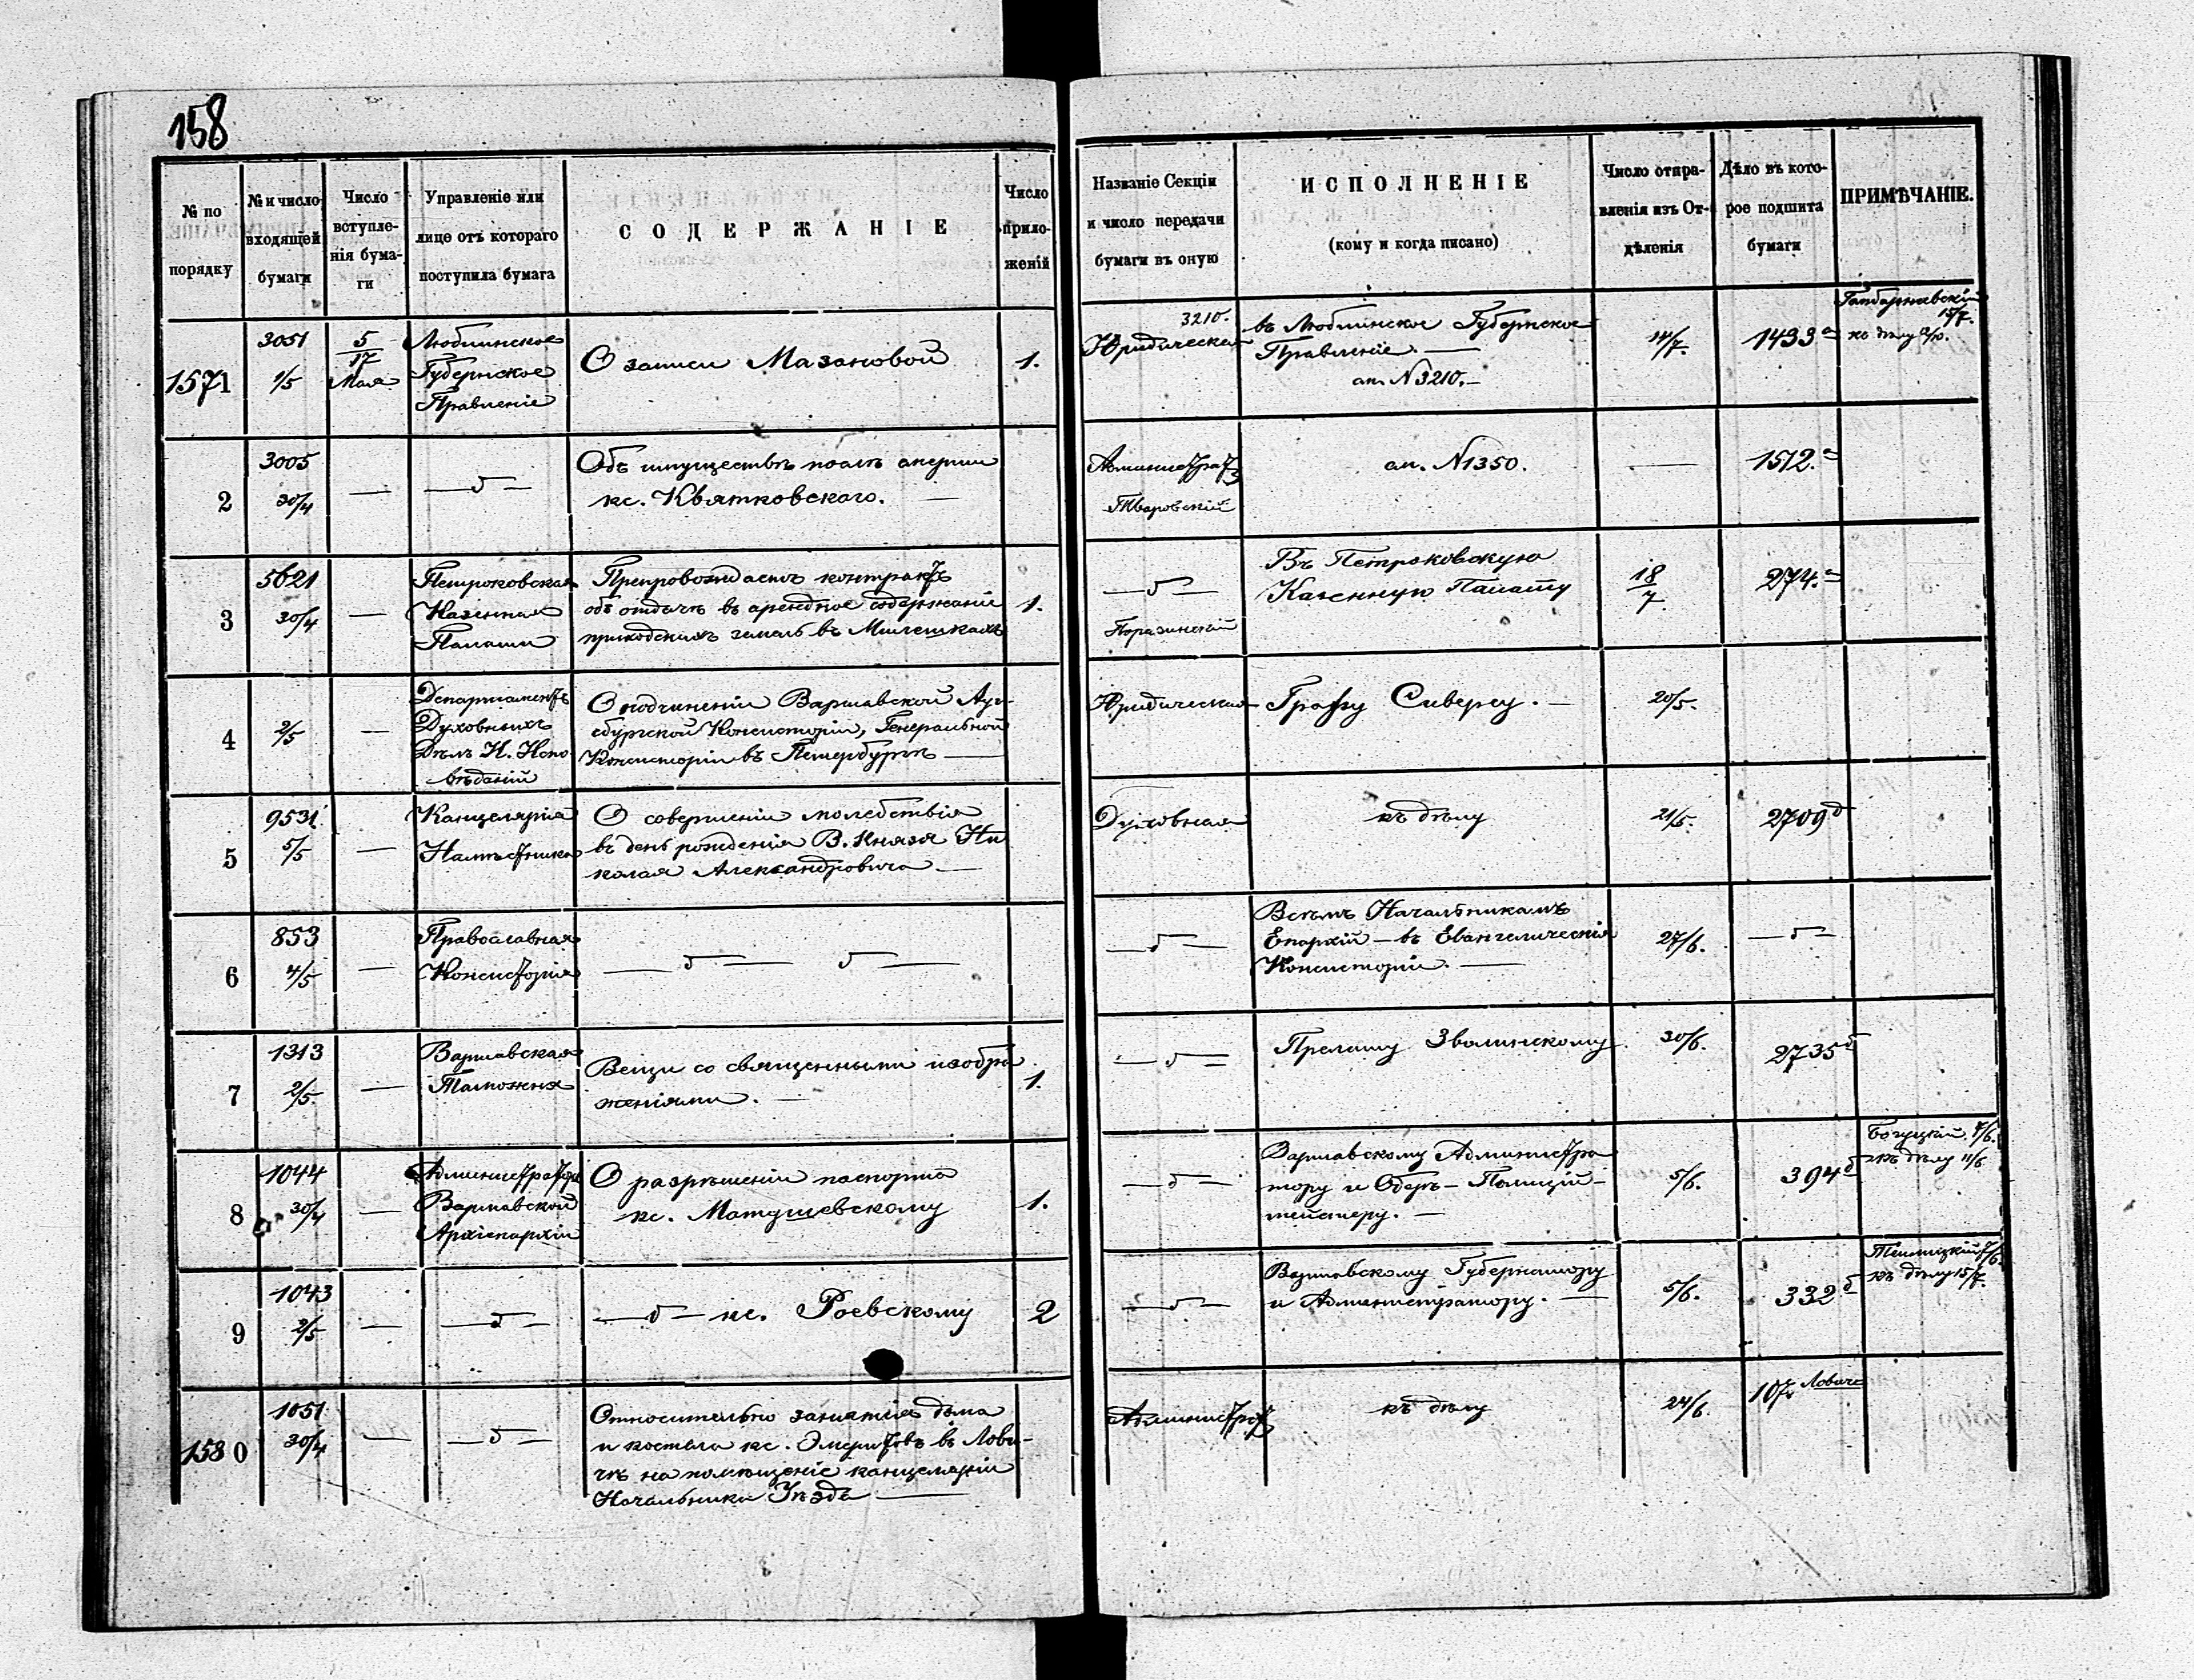 158
№ по порядку
№ и число входящей бумаги
Число вступле-нія бума-ги
Управленіе или лице отъ котораго поступила бумага
СОДЕРЖАНІЕ
Число прило-женій
Названіе Секціи и число передачи бумаги въ оную
ИСПОЛНЕНІЕ
(кому и когда писано)
Число отпра-вленія изъ От-дѣленія
Дѣло въ кото-рое подшита бумаги
ПРИМѢЧАНІЕ.
1571
3051
1/5
5/17
Мая
Люблинское
Губернское
Правленіе
О записи Мазановой
1.
3210.
Юридическая
въ Люблинское Губернское
Правленіе. —
ан. N 3210. —
14/7.
1433 а
15/7.
къ дѣлу
2
3005
30/4
—
— d —
Объ имуществѣ послѣ смерти
кс. Квятковскаго. —
Администрат
Тваровскій
ан. N 1350.
—
1512. а
3
5621
30/4
—
Петроковская
Казенная
Палата
Препровождаетъ контрактъ
объ отдачѣ въ арендное содержаніе
приходскихъ земель въ Милешкахъ
1.
— d —
Въ Петроковскую
Казенную Палату
18/7
274. а
4
2/5
—
Департаментъ
Духовныхъ
Дѣлъ И. Испо-
вѣданій
О подчиненіи Варшавской Ауг-
сбургской Консисторіи, Генеральной
Консисторіи въ Петербургѣ —
Юридическая
Графу Сиверсу. —
20/5.
5
9531
5/5
—
Канцелярія
Намѣстника
О совершеніи молебствія
въ день рожденія В. Князя Ни
колая Александровича —
Духовная
къ дѣлу
21/5.
2709 б
6
853
4/5
—
Православная
Консисторія
— d — d —
— d —
Всѣмъ Начальникамъ
Епархій — въ Евангелическія
Консисторіи. —
27/6.
— d —
7
1313
2/5.
—
Варшавская
Таможня
Вещи со священными изобра
женіями. —
1.
— d —
Прелату Зволинскому
30/6.
2735 б
8
1044
30/4
—
Администраторъ
Варшавской
Архіепархіи
О разрѣшеніи паспорта
кс. Матушевскому
1.
— d —
Варшавскому Администра
тору и Оберъ — Полицій —
мейстеру. —
5/6.
394 б
Богуцкій 7/6.
къ дѣлу 11/6
9
1043
2/5
—
— d —
— d — кс. Роевскому
2
— d —
Варшавскому Губернатору
и Администратору. —
5/6.
332 б
7/6
къ дѣлу 15/7.
1580
1051
30/4
—
— d —
Относительно занятія дома
и костела кс. Эмеритовъ въ Лови-
чѣ на помѣщеніе канцеляріи
Начальника Уѣзда —
Администрат
къ дѣлу
24/6.
107 Ловичъ